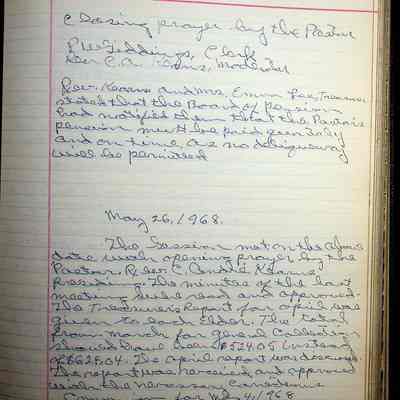 Closing prayer by the Pastor
P.W. Giddings, Clerk
Rev. C.A. Kearns, Moderator
Rev. Kearns and Mrs. Emma Lee, Treasurer
stated that the Board of pension
had notified them that the Pastor's
pension must be paid quarterly
and on time, as no delinquency
will be permitted
May 26, 1968.
The Session met on the above
date with opening prayer by the
Pastor, Rev. C. Kearns
Presiding. The minutes of the last
meeting were read and approved.
The Treasurer's Report for april was
given to each Elder. The total
from march for general Collection
should have been $524.05 instead
of $625.04. The april report was discussed.
The report was received and approved
with the necessary Corrections
Communion for May 4, 1968